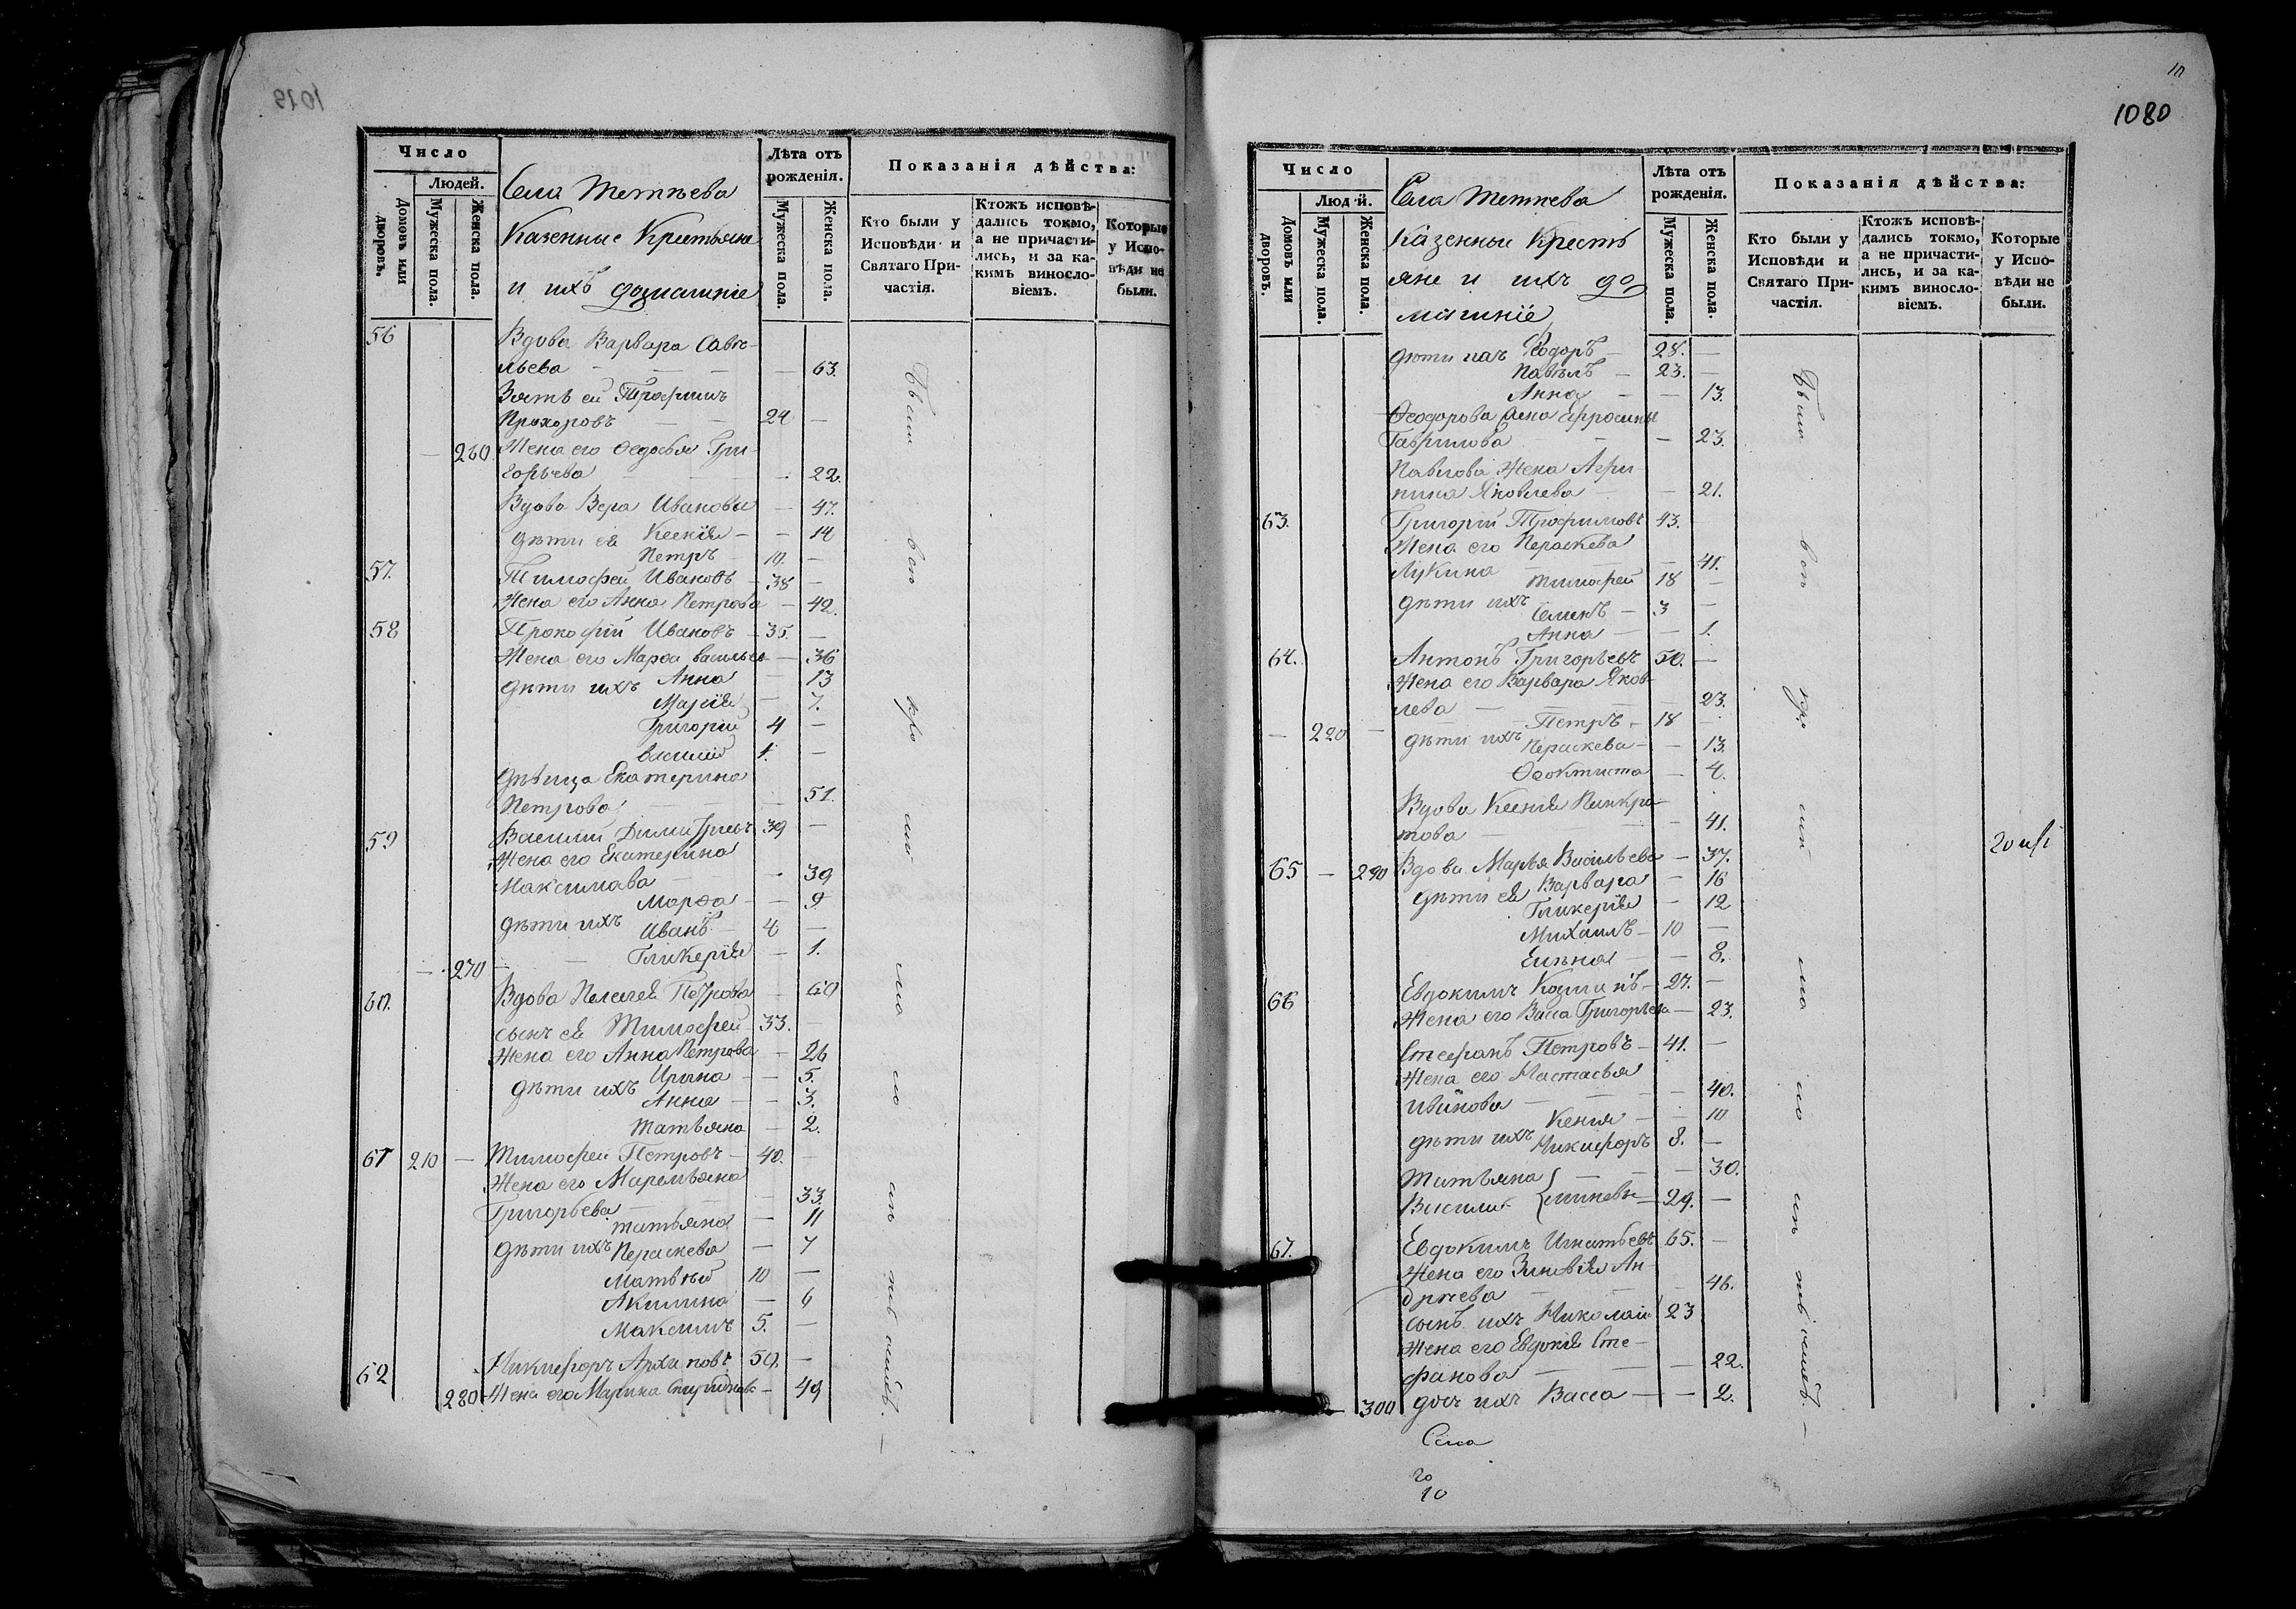 Число
Людей.
Домовъ или дворовъ.
Мужеска пола.
Женска пола.
Села Тетнева
Казенные Крестьяне
и ихъ домашніе
Лѣта отъ рожденія.
Мужеска пола.
Женска пола.
Показанія дѣйства:
Кто были у Исповѣди и Святаго Причастія.
Ктожъ исповѣдались токмо, а не причастились, и за какимъ винословіемъ.
Которые у Исповѣди не были.
56 Вдова Варвара Саве-
льева — 63.
Зять ея Трофимъ
Прохоровъ 24 —
— 260 Жена его Ѳедосья Гри-
горьева — 22.
Вдова Вера Иванова — 47.
дѣти ея Ксенія — — 14
Петръ 10. —
57. Тимофей Ивановъ — 38 —
Жена его Анна Петрова — 42.
58 Прокофій Ивановъ — 35. —
Жена его Марфа Васильева — 36
дѣти ихъ Анна — 13
Марія — 7.
Григорій 4 —
Василій 1. —
Дѣвица Екатерина
Петрова — 51.
59 Василій Димитріевъ 39 —
Жена его Екатерина
Максимова — 39
Марфа — — 9
дѣти ихъ Иванъ — 4 —
Гликерія — 1.
— 270 —
60. Вдова Пелагея Петрова — 60
сынъ ея Тимофей 33. —
Жена его Анна Петрова — 26
дѣти ихъ Ирина — — 5.
Анна — — 3.
Татьяна — 2.
61 210 — Тимофей Петровъ — 40. —
Жена его Маремьяна
Григорьева — 33.
Татьяна — 11
дѣти ихъ Параскева — 7
Матвѣй 10 —
Акилина — 6
Максимъ 5. —
62 Никифоръ Архиповъ 50. —
280 Жена его Марина Спиридонова — 49
1080
Число
Людей.
Домовъ или дворовъ.
Мужеска пола.
Женска пола.
Села Тетнева
Казенные Кресть
яне и ихъ до
машніе
Лѣта отъ рожденія.
Мужеска пола.
Женска пола.
Показанія дѣйства:
Кто были у Исповѣди и Святаго Причастія.
Ктожъ исповѣдались токмо, а не причастились, и за какимъ винословіемъ.
Которые у Исповѣди не были.
дѣти ихъ Ѳеодоръ — 28. —
Павелъ — 23. —
Анна — — 13.
Ѳеодорова жена Ефросинья
Гаврилова — — 23.
Павлова Жена Агри-
пина Яковлева — — 21.
63. Григорій Трофимовъ 43.
Жена его Пераскева
Лукина — 41.
Тимофей 18 —
дѣти ихъ Семенъ — 3 —
Анна — — 1.
64. Антонъ Григорьевъ 50. —
Жена его Варвара Яков-
лева — — 23.
— 220 — Петръ — 18 —
дѣти ихъ Пераскева — — 13.
Ѳеоктиста — 4.
Вдова Ксенія Панкра-
това — — 41.
65 — 290 Вдова Марья Васильева — 37.
дѣти ея Варвара — 16
Гликерія — 12
Михаилъ — 10 —
Елена — — 8.
66 Евдокимъ — 27. —
Жена его Васса Григорьева — 23.
Стефанъ Петровъ — 41. —
Жена его Настасья
Иванова — — 40.
Ксения — — 10
дѣти ихъ Никифоръ 8. —
Татьяна — — 30.
— 29. —
67. Евдокимъ Игнатьевъ 65. —
Жена его Зиновія Ан-
дреева — — 46.
сынъ ихъ Николай 23
Жена его Евдокія Сте-
фанова — — 22.
— 300 дочь ихъ Васса — — 2.
Села
20
10